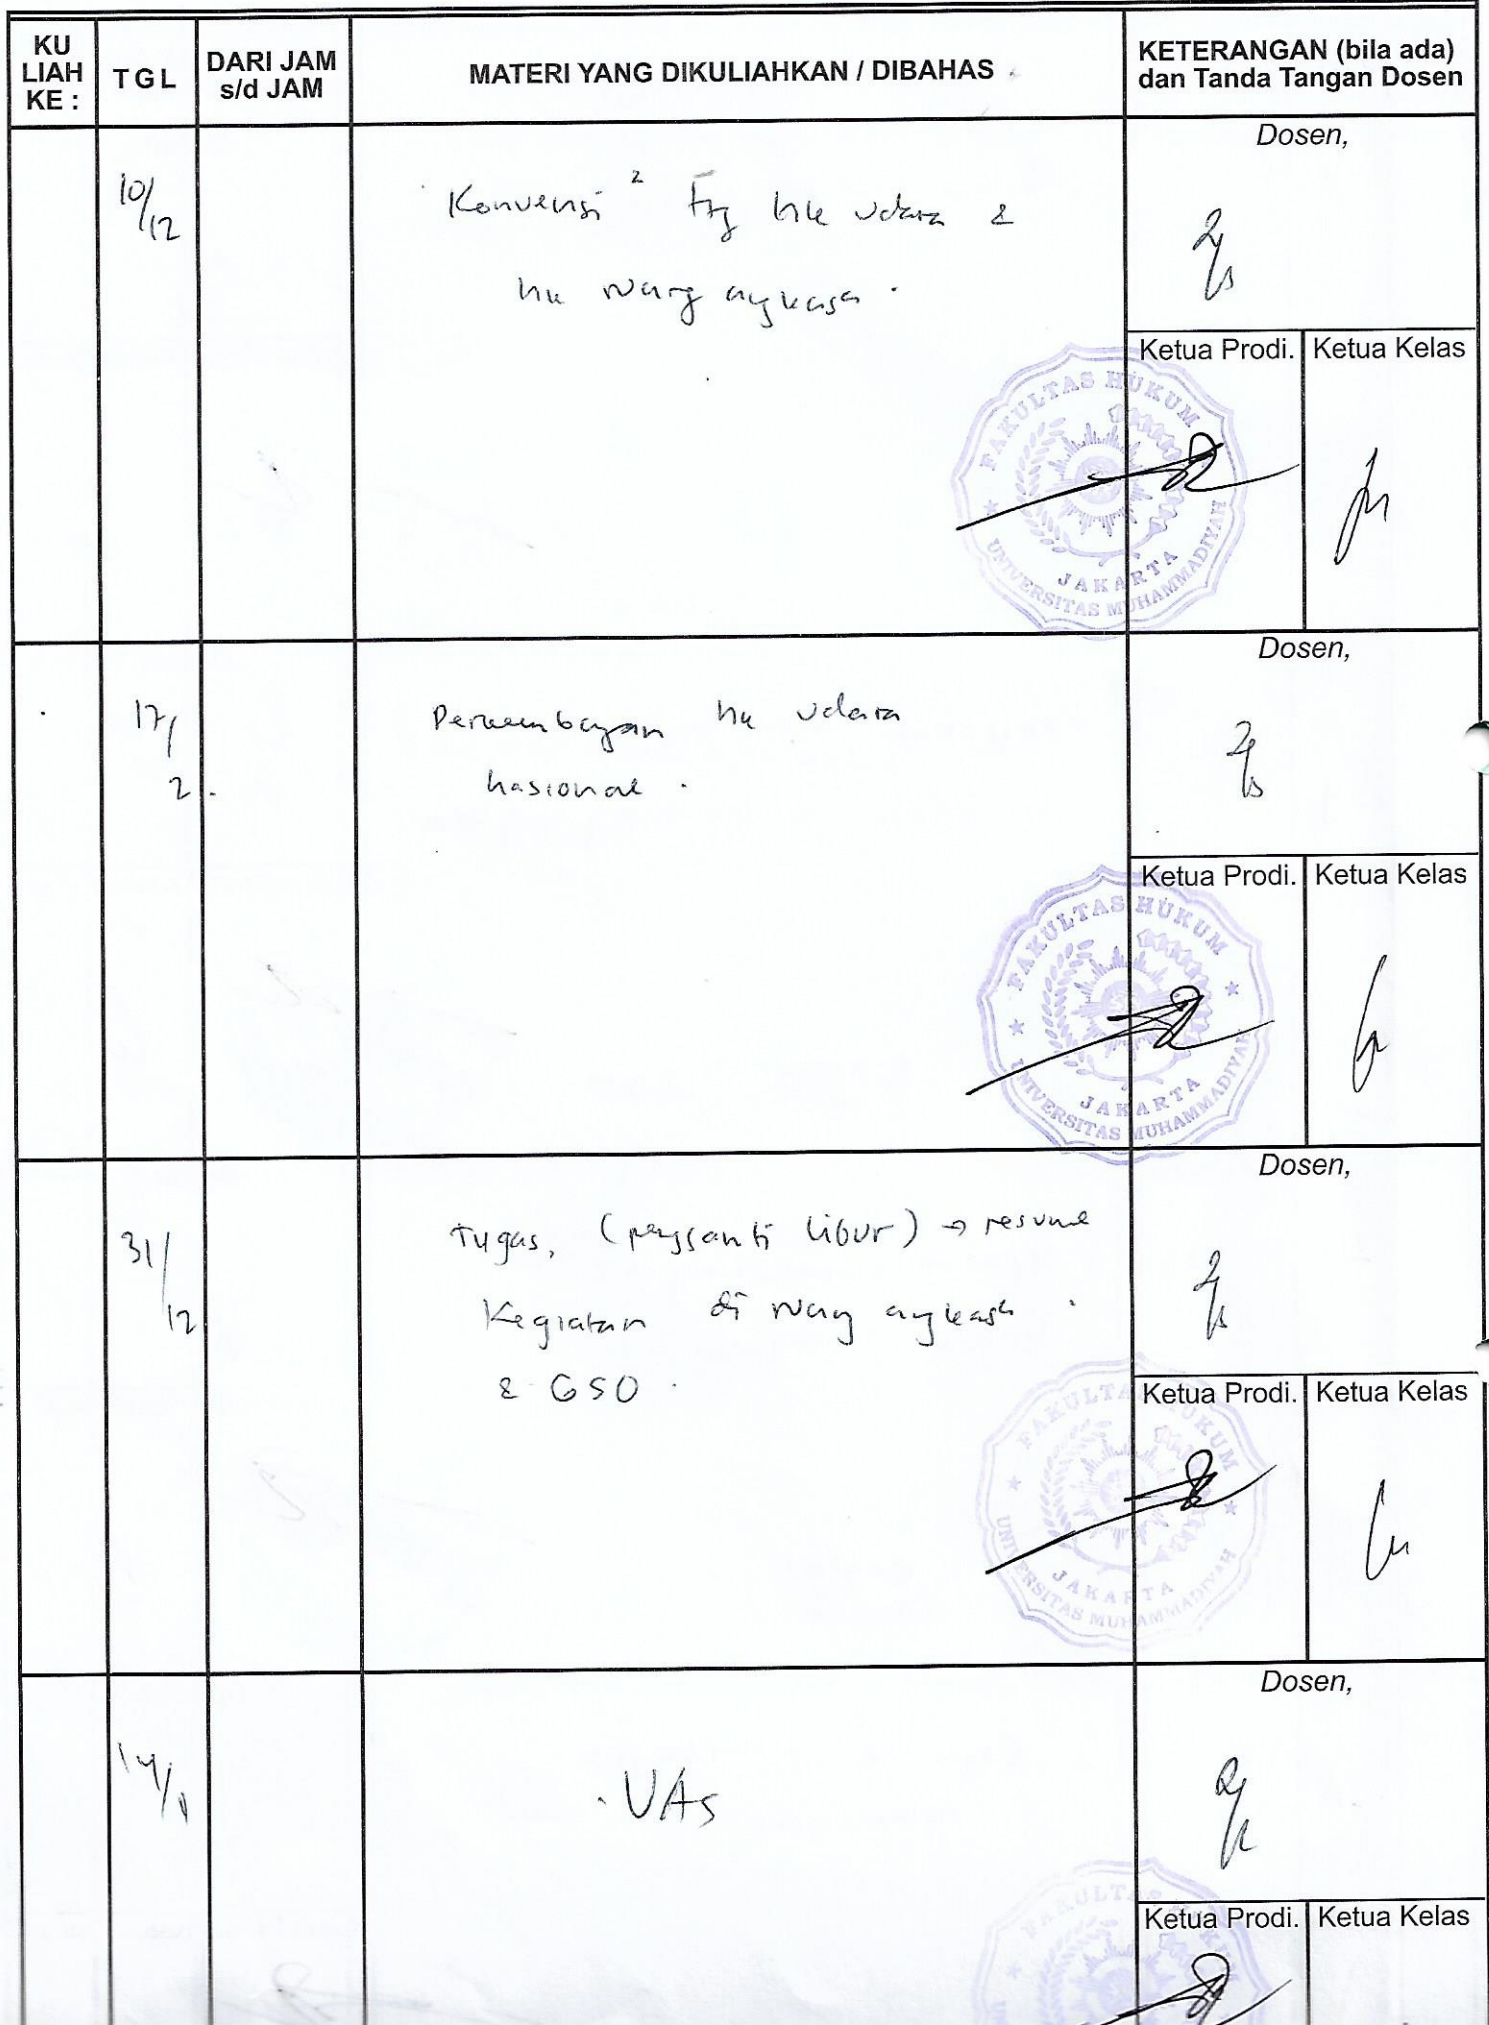 KU
LIAH
KE :
TGL
DARI JAM
s/d JAM
MATERI YANG DIKULIAHKAN / DIBAHAS
KETERANGAN (bila ada)
dan Tanda Tangan Dosen
Dosen,
10/12
Konvensi ² ttg hk udara &
hk ruang angkasa .
Ketua Prodi.
Ketua Kelas
FAKULTAS HUKUM
JAKARTA
UNIVERSITAS MUHAMMADIYAH
Dosen,
17/
2
Perkembangan hk udara
nasional .
Ketua Prodi.
Ketua Kelas
FAKULTAS HUKUM
JAKARTA
UNIVERSITAS MUHAMMADIYAH
Dosen,
31/12
Tugas, (pengganti libur) → resume
Kegiatan di ruang angkasa .
& GSO .
Ketua Prodi.
Ketua Kelas
FAKULTAS HUKUM
JAKARTA
UNIVERSITAS MUHAMMADIYAH
Dosen,
14/1
UAS
Ketua Prodi.
Ketua Kelas
FAKULTAS HUKUM